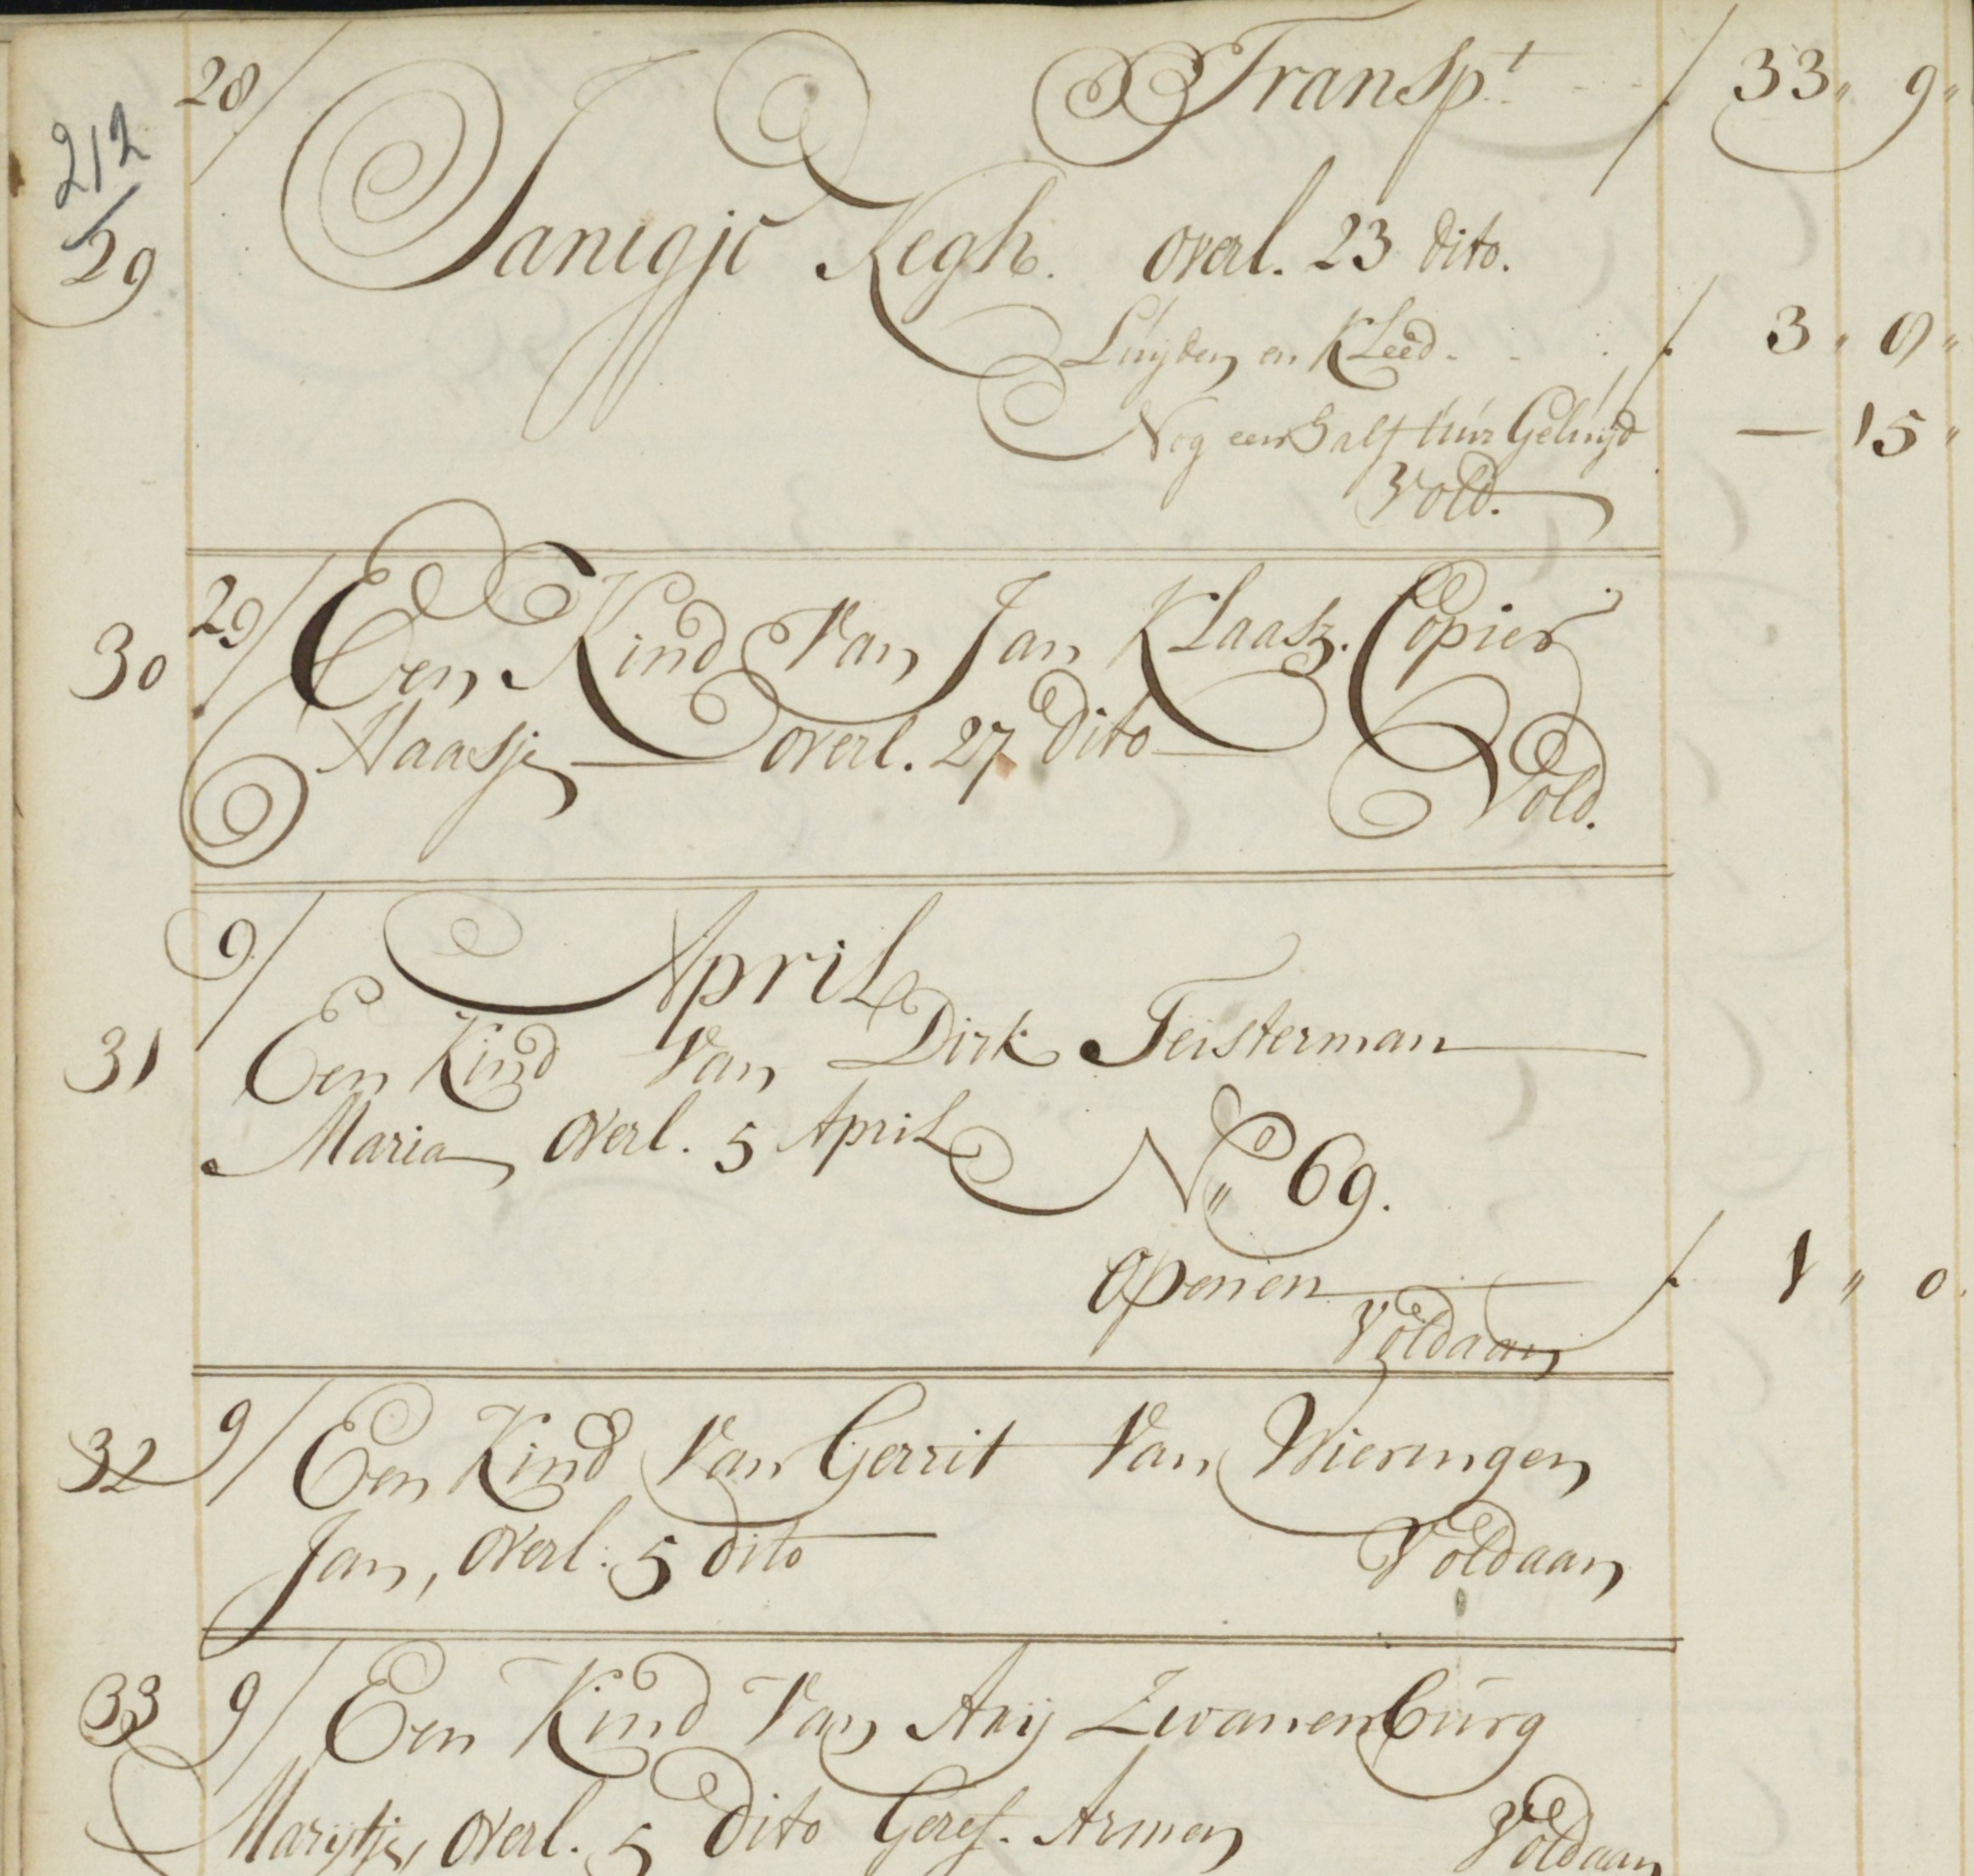 28/ Transpt f 33 „ 9 „
212
29 Janigje Kegh. overl. 23 dito.
Luyden en Kleed - - f 3 „ 0 „
Nog een Half Uur Geluyd — 15 „
Vold.
30 29/ Een Kind Van Jan Klaasz. Copier
Haasje — overl. 27 dito —
Vold.
9/ April
31 Een Kind Van Dirk Feisterman —
Maria, overl. 5 April
No. 69.
openen — f 1 „ 0
Voldaan
32 9/ Een Kind Van Gerrit Van Wieringen
Jan, overl. 5 dito — Voldaan
33 9/ Een Kind Van Arij Zwanenburg
Marijtje, overl. 5 dito Geref. Armen Voldaan